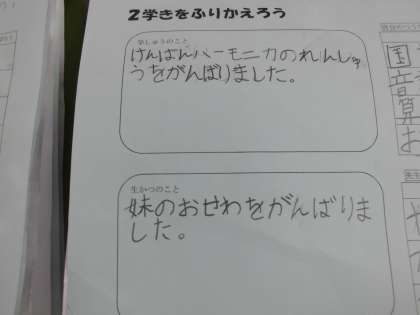 2学きをふりかえろう
学しゅうのこと
けんばんハーモニカのれんしゅ
うをがんばりました。
生かつのこと
妹のおせわをがんばりま
した。
国
音
算
お